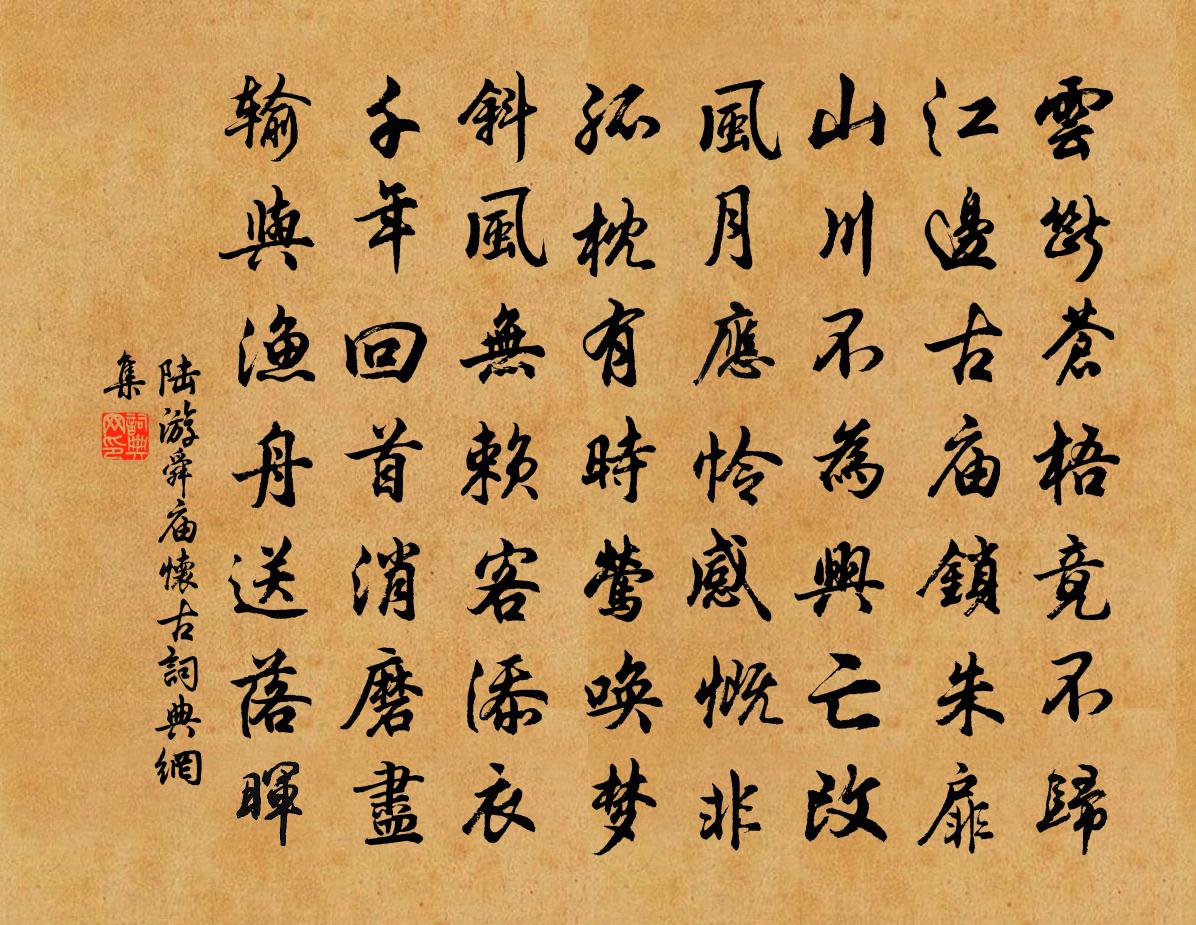 雲斷蒼梧竟不歸
江邊古庙鎖朱扉
山川不為興亡改
風月應怜感慨非
孤枕有時鶯喚梦
斜風無賴客添衣
千年回首消磨盡
输與漁舟送落暉
陆游舜庙懷古詞典網
集
詞典
网印